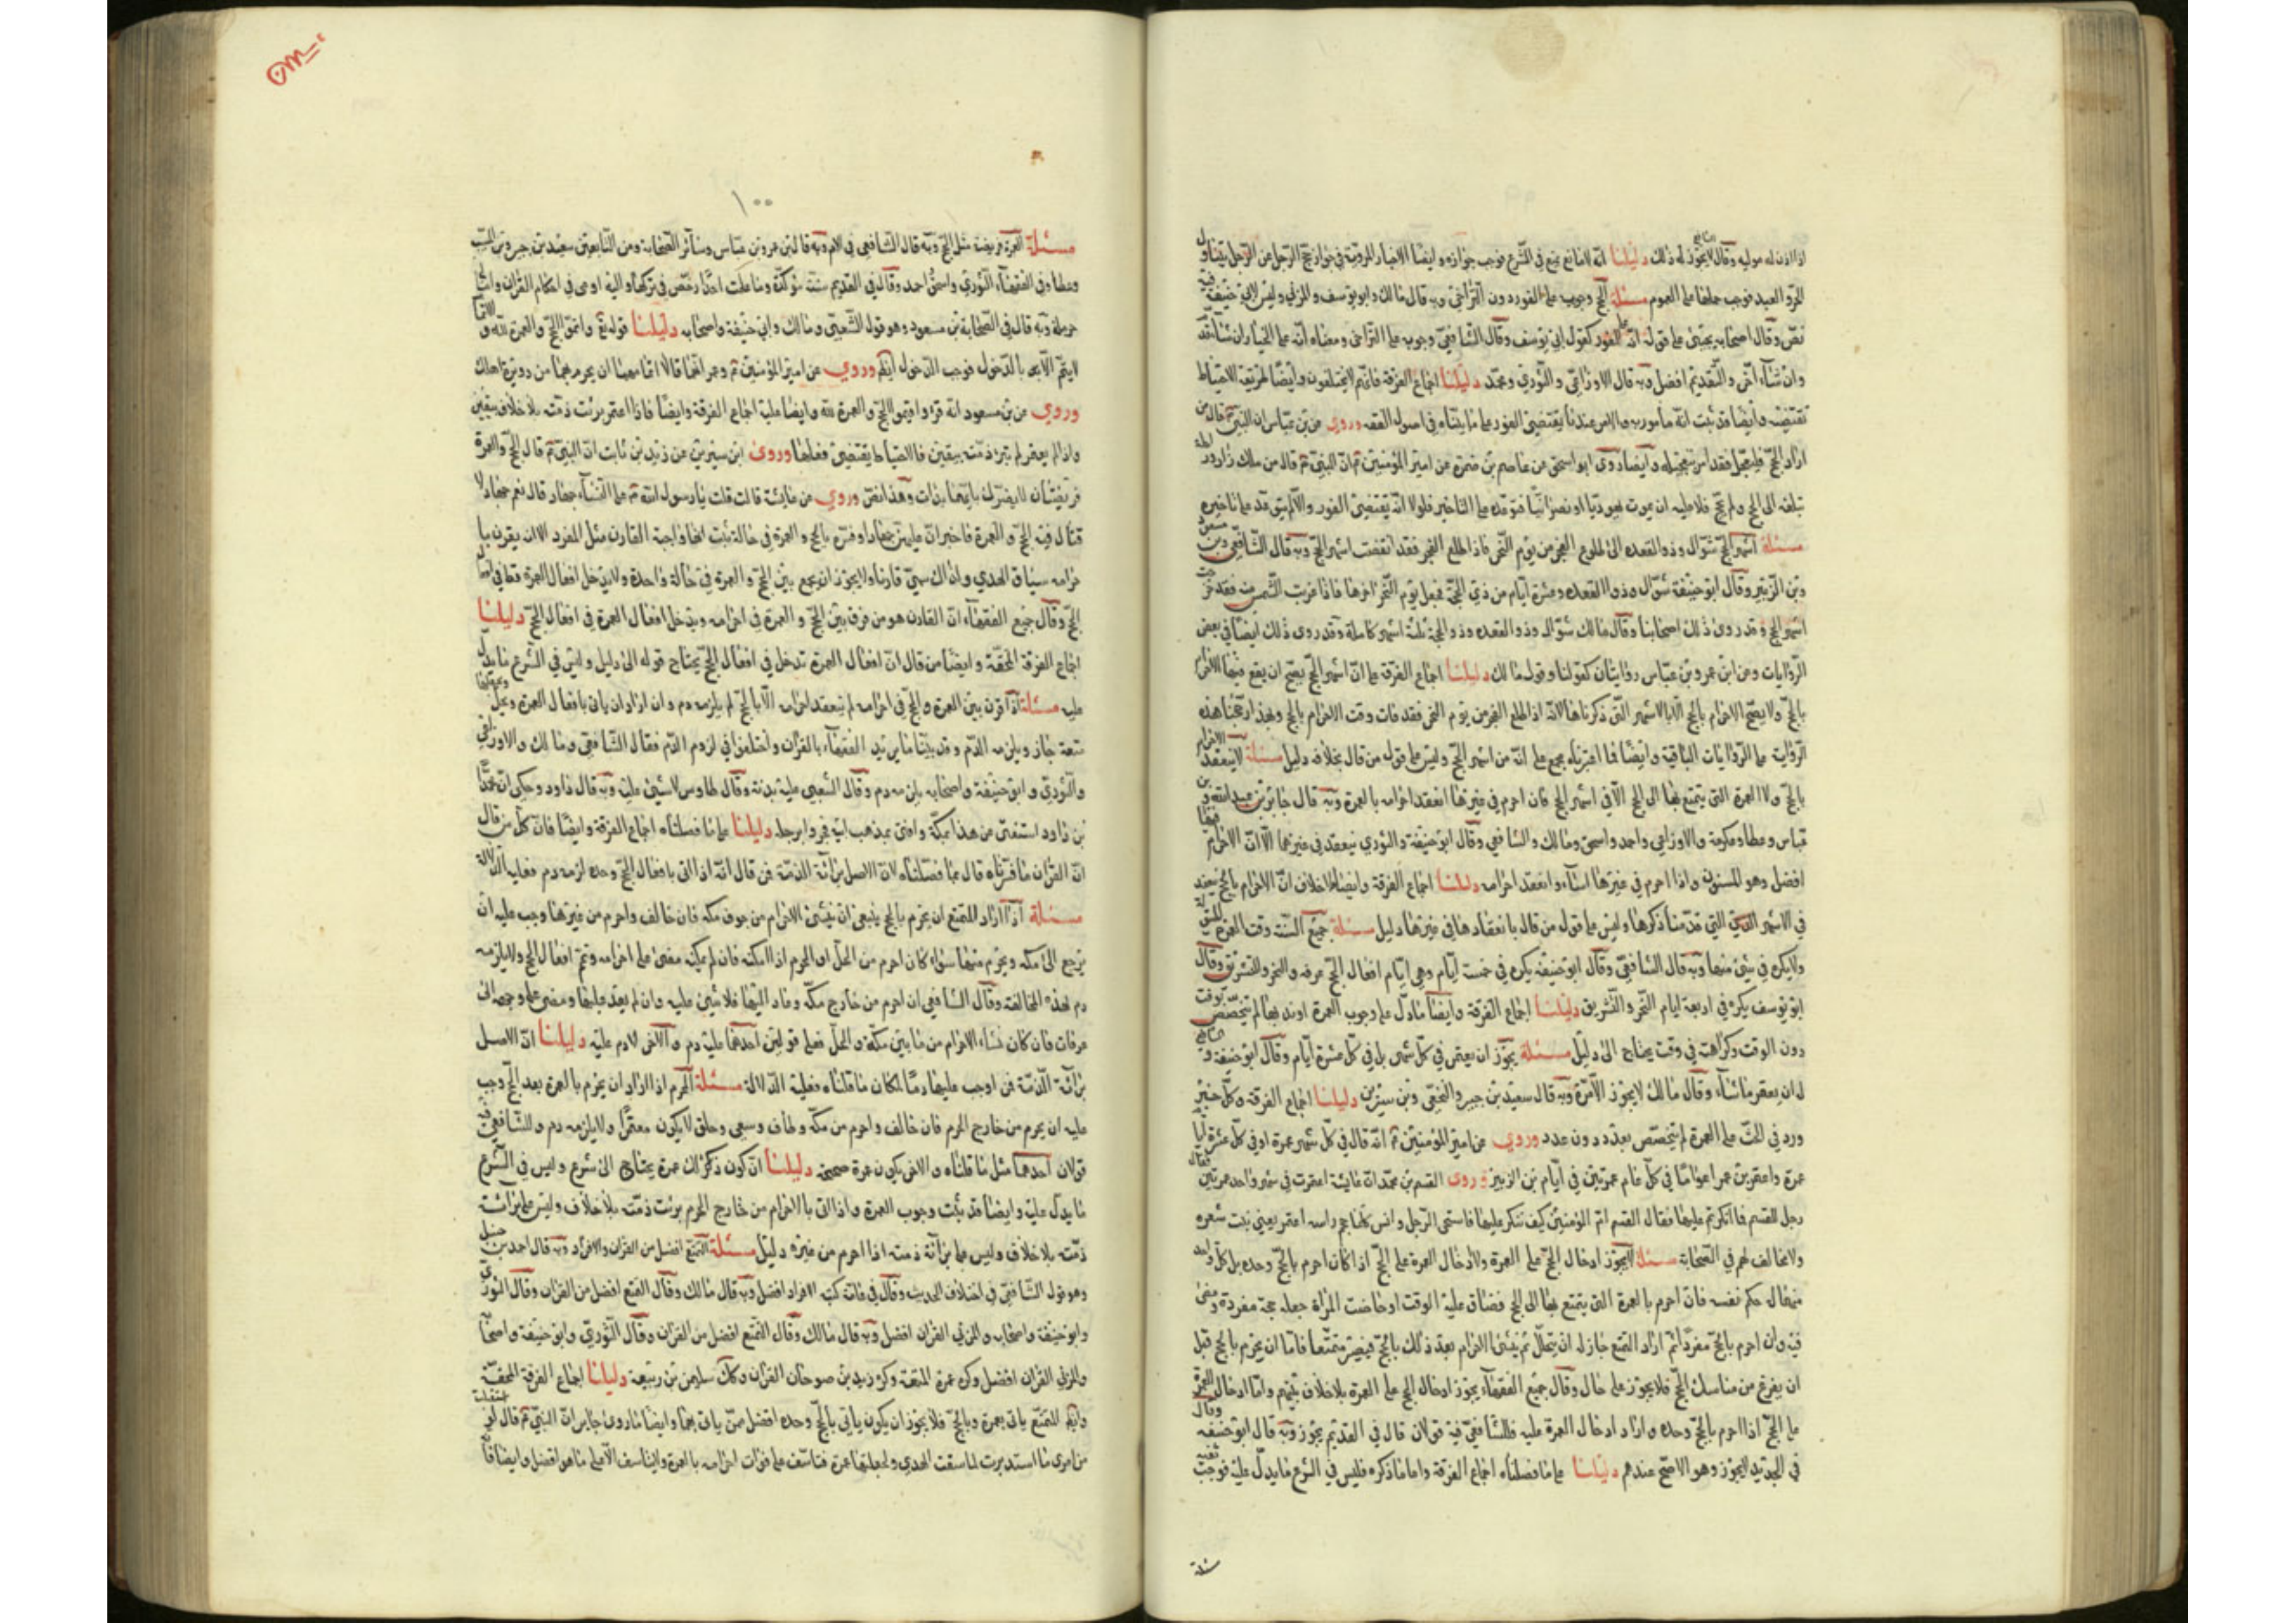 اذا اذن له موليه وقال لا يجوز له ذلك دليلنا انه لا مانع يمنع في الشرع فوجب جوازه وايضا الاخبار المروية في جواز حج الرجل عن الرجل يتناول
الحر والعبد فوجب حملها على العموم مسئلة الحج وجوبه على الفور دون التراخي وبه قال مالك وابو يوسف والمزني وليس لابي حنيفة فيه
نص وقال اصحابه يجيء على قوله انه على الفور كقول ابي يوسف وقال الشافعي وجوبه على التراخي ومعناه انه على الخيار ان شاء قدم
وان شاء اخر والتقديم افضل وبه قال الاوزاعي والثوري ومحمد دليلنا اجماع الفرقة فانهم لا يختلفون وايضا طريقة الاحتياط
تقتضيه وايضا قد ثبت انه مامور به والامر عندنا يقتضي الفور على ما بيناه في اصول الفقه وروي عن بن عباس ان النبي قال من
اراد الحج فليعجل فقد امر بتعجيله وايضا روى ابو اسحق عن عاصم بن ضمرة عن امير المؤمنين ان النبي قال من ملك زادا وراحلة
تبلغه الى الحج ولم يحج فلا عليه ان يموت يهوديا او نصرانيا فتوعده على التاخير فلولا انه يقتضي الفور والا لم يتوعد على تاخيره
مسئلة اشهر الحج شوال وذو القعده الى طلوع الفجر من يوم النحر فاذا طلع الفجر فقد انقضت اشهر الحج وبه قال الشافعي وبن مسعود
وبن الزبير وقال ابو حنيفة شوال وذو القعده وعشرة ايام من ذي الحجة فجعل يوم النحر اخرها فاذا غربت الشمس منه فقد خرجت
اشهر الحج وقد روى ذلك اصحابنا وقال مالك شوال وذو القعده وذو الحجة ثلثة اشهر كاملة وقد روى ذلك ايضا في بعض
الروايات وعن ابن عمر وبن عباس روايتان كقولنا وقول مالك دليلنا اجماع الفرقة على ان اشهر الحج يصح ان يقع فيها الاحرام
بالحج ولا يصح الاحرام بالحج الا بالاشهر التي ذكرناها لانه اذا طلع الفجر من يوم النحر فقد فات وقت الاحرام بالحج وبهذا رجحنا هذه
الرواية على الروايات الباقية وايضا فما اعتبرناه مجمع على انه من اشهر الحج وليس على قول من قال بخلافه دليل مسئلة لا ينعقد الاحرام
بالحج ولا العمرة التي يتمتع بها الى الحج الا في اشهر الحج فان احرم في غيرها انعقد احرامه بالعمرة وبه قال جابر بن عبد الله وبن
عباس وعطا وعكرمة والاوزاعي واحمد واسحق ومالك والشافعي وقال ابو حنيفة والثوري ينعقد في غيرهما الا ان الاحرام فيها
افضل وهو المسنون واذا احرم في غيرها اساء وانعقد احرامه دليلنا اجماع الفرقة وايضا لا خلاف ان الاحرام بالحج ينعقد
في الاشهر التي قدمنا ذكرها وليس على قول من قال بانعقادها في غيرها دليل مسئلة جميع السنة وقت العمرة المبتولة
ولا يكره في شئ منها وبه قال الشافعي وقال ابو حنيفة يكره في خمسة ايام وهي ايام افعال الحج عرفه والنحر والتشريق وقال
ابو يوسف يكره في اربعة ايام النحر والتشريق دليلنا اجماع الفرقة وايضا ما دل على وجوب العمرة او ندبها لم يتخصص بوقت
دون الوقت وكراهته في وقت يحتاج الى دليل مسئلة يجوز ان يعتمر في كل شهر بل في كل عشرة ايام وقال ابو حنيفة والشافعي
له ان يعتمر ما شاء وقال مالك لا يجوز الا مرة وبه قال سعيد بن جبير والنخعي وبن سيرين دليلنا اجماع الفرقة وكل خبر
ورد في الحث على العمرة لم يتخصص بعدد دون عدد وروي عن امير المؤمنين انه قال في كل شهر عمرة او في كل عشرة ايام
عمرة واعتمر بن عمر اعواما في كل عام عمرتين في ايام بن الزبير وروى القسم بن محمد ان عايشة اعتمرت في سفر واحد عمرتين فقال
رجل للقسم فما انكرتم عليها فقال القسم ام المؤمنين كيف ننكر عليها فاستحى الرجل وانس كلما حمم راسه اعتمر يعني نبت شعره
ولا مخالف لهم في الصحابة مسئلة لا يجوز ادخال الحج على العمرة ولا ادخال العمرة على الحج اذا كان احرم بالحج وحده بل كل واحد
منهما له حكم نفسه فان احرم بالعمرة التي يتمتع بها الى الحج فضاق عليه الوقت او حاضت المراة جعله حجة مفردة ومضى
فيه وان احرم بالحج مفردا ثم اراد التمتع جاز له ان يتحلل ثم ينشئ الاحرام بعد ذلك بالحج فيصير متمتعا فاما ان يحرم بالحج قبل
ان يفرغ من مناسك الحج فلا يجوز على حال وقال جميع الفقهاء يجوز ادخال الحج على العمرة بلا خلاف بينهم واما ادخال العمرة
على الحج اذا احرم بالحج وحده واراد ادخال العمرة عليه فللشافعي فيه قولان قال في القديم يجوز وبه قال ابو حنيفه وقال
في الجديد لا يجوز وهو الاصح عندهم دليلنا على ما فصلناه اجماع الفرقة واما ما ذكره فليس في الشرع ما يدل عليه فوجب نفيه
١٠٠
مسئلة العمرة فريضة مثل الحج وبه قال الشافعي في الام وبه قال بن عمر وبن عباس وسائر الصحابة ومن التابعين سعيد بن جبير وبن المسيب
وعطا وفي الفقهاء الثوري واسحق واحمد وقال في القديم سنة مؤكدة وما علمت احدا رخص في تركها واليه اومى في احكام القران وامالي
حرملة وبه قال في الصحابة بن مسعود وهو قول الشعبي ومالك وابي حنيفة واصحابه دليلنا قوله تع واتموا الحج والعمرة لله والاتمام
لا يتم الا بالدخول فوجب الدخول ايضا وروي عن امير المؤمنين وعمر انهما قالا اتمامهما ان يحرم بهما من دويرة اهلك
وروي عن بن مسعود انه قرا واقيموا الحج والعمرة لله وايضا عليه اجماع الفرقة وايضا فاذا اعتمر برئت ذمته بلا خلاف بيقين
واذا لم يعتمر لم تبرء ذمته بيقين فالاحتياط يقتضي فعلها وروى ابن سيرين عن زيد بن ثابت ان النبي قال الحج والعمرة
فريضتان لا يضرك بايهما بدات وهذا نص وروي عن عايشة قالت قلت يا رسول الله على النساء جهاد قال نعم جهاد لا
قتال فيه الحج والعمرة فاخبر ان عليهن جهادا وفسره بالحج والعمرة في حالة ثبت انها واجبة القارن مثل المفرد الا انه يقرن با
حرامه سياق الهدي ولذلك سمي قارنا ولا يجوز ان يجمع بين الحج والعمرة في حالة واحدة ولا يدخل افعال العمرة قط في افعال
الحج وقال جميع الفقهاء ان القارن هو من قرن بين الحج والعمرة في احرامه ويدخل افعال العمرة في افعال الحج دليلنا
اجماع الفرقة المحقة وايضا من قال ان افعال العمرة تدخل في افعال الحج يحتاج قوله الى دليل وليس في الشرع ما يدل
عليه مسئلة اذا قرن بين العمرة والحج في احرامه لم ينعقد احرامه الا بالحج لم يلزمه دم وان اراد ان ياتي بافعال العمرة ويحل ويجعلها
متعة جاز ويلزمه الدم وقد بينا ما يريد الفقهاء بالقران واختلفوا في لزوم الدم فقال الشافعي ومالك والاوزاعي
والثوري وابو حنيفة واصحابه يلزمه دم وقال الشعبي عليه بدنة وقال طاوس لا شيئ عليه وبه قال داود وحكى ان محمد
بن داود استفتي عن هذا بمكة وافتى بمذهب ابيه فجروا برجله دليلنا على ما فصلناه اجماع الفرقة وايضا فان كل من قال
ان القران ما فسرناه قال بما فصلناه لان الاصل برائة الذمة فمن قال انه اذا اتى بافعال الحج وحده لزمه دم فعليه الدلالة
مسئلة اذا اراد المتمتع ان يحرم بالحج ينبغي ان ينشئ الاحرام من جوف مكه فان خالف واحرم من غيرها وجب عليه ان
يرجع الى مكه ويحرم منها سواء كان احرم من الحل او الحرم اذا امكنه فان لم يمكنه مضى على احرامه وتمم افعال الحج ولا يلزمه
دم لهذه المخالفة وقال الشافعي ان احرم من خارج مكة وعاد اليها فلا شيئ عليه وان لم يعد عليها ومضى على وجهه الى
عرفات فان كان انشاء الاحرام من ما بين مكة والحل فعلى قولين احدهما عليه دم والاخر لا دم عليه دليلنا ان الاصل
برائة الذمة فمن اوجب عليها دما لمكان ما قلناه فعليه الدلالة مسئلة المحرم اذا اراد ان يحرم بالعمرة بعد الحج وجب
عليه ان يحرم من خارج الحرم فان خالف واحرم من مكة وطاف وسعى وحلق لا يكون معتمرا ولا يلزمه دم وللشافعي فيه
قولان احدهما مثل ما قلناه والاخر يكون عمرة صحيحة دليلنا ان كون ذلك عمرة يحتاج الى شرع وليس في الشرع
ما يدل عليه وايضا قد ثبت وجوب العمرة واذا اتى بالاحرام من خارج الحرم برئت ذمته بلا خلاف وليس على برائة
ذمته بلا خلاف وليس على برائة ذمته اذا احرم من غيره دليل مسئلة التمتع افضل من القران والافراد وبه قال احمد بن حنبل
وهو قول الشافعي في اختلاف الحديث وقال في عامة كتبه الافراد افضل وبه قال مالك وقال التمتع افضل من القران وقال الثوري
وابو حنيفة واصحابه والمزني القران افضل وبه قال مالك وقال التمتع افضل من القران وقال الثوري وابو حنيفة واصحابه
والمزني القران افضل وكره عمرة المتعة وكره زيد بن صوحان القران وكذلك سلمن بن ربيعة دليلنا اجماع الفرقة المحقة
وايضا المتمتع ياتي بعمرة وبالحج فلا يجوز ان يكون ياتي بالحج وحده افضل ممن ياتي بهما وايضا ما روى جابر ان النبي قال لو استقبلت
من امري ما استدبرت لما سقت الهدي ولجعلتها عمرة فتاسف على فوات احرامه بالعمرة ولا يتاسف الا على ما هو افضل وايضا